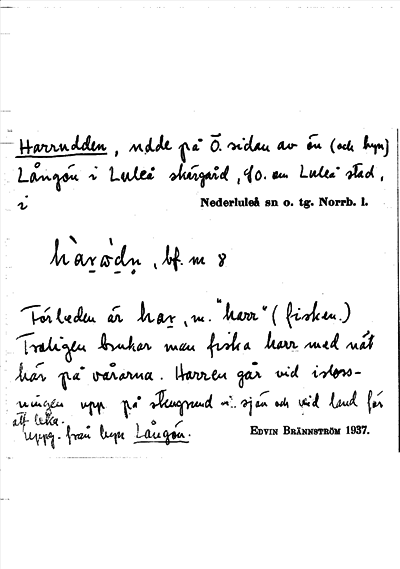 Harrudden, udde på Ö. sidan av ön (och byn)
Långön i Luleå skärgård, SO. om Luleå stad,
i Nederluleå sn o. tg. Norrb. l.
bf. m 8
Förleden är har, m. "harr" (fisken.)
Troligen brukar man fiska harr med nät
här på vårarna. Harren går vid isloss-
ningen upp på stengrund i sjön och vid land för
att leka.
Uppg. från byn Långön. EDVIN BRÄNNSTRÖM 1937.